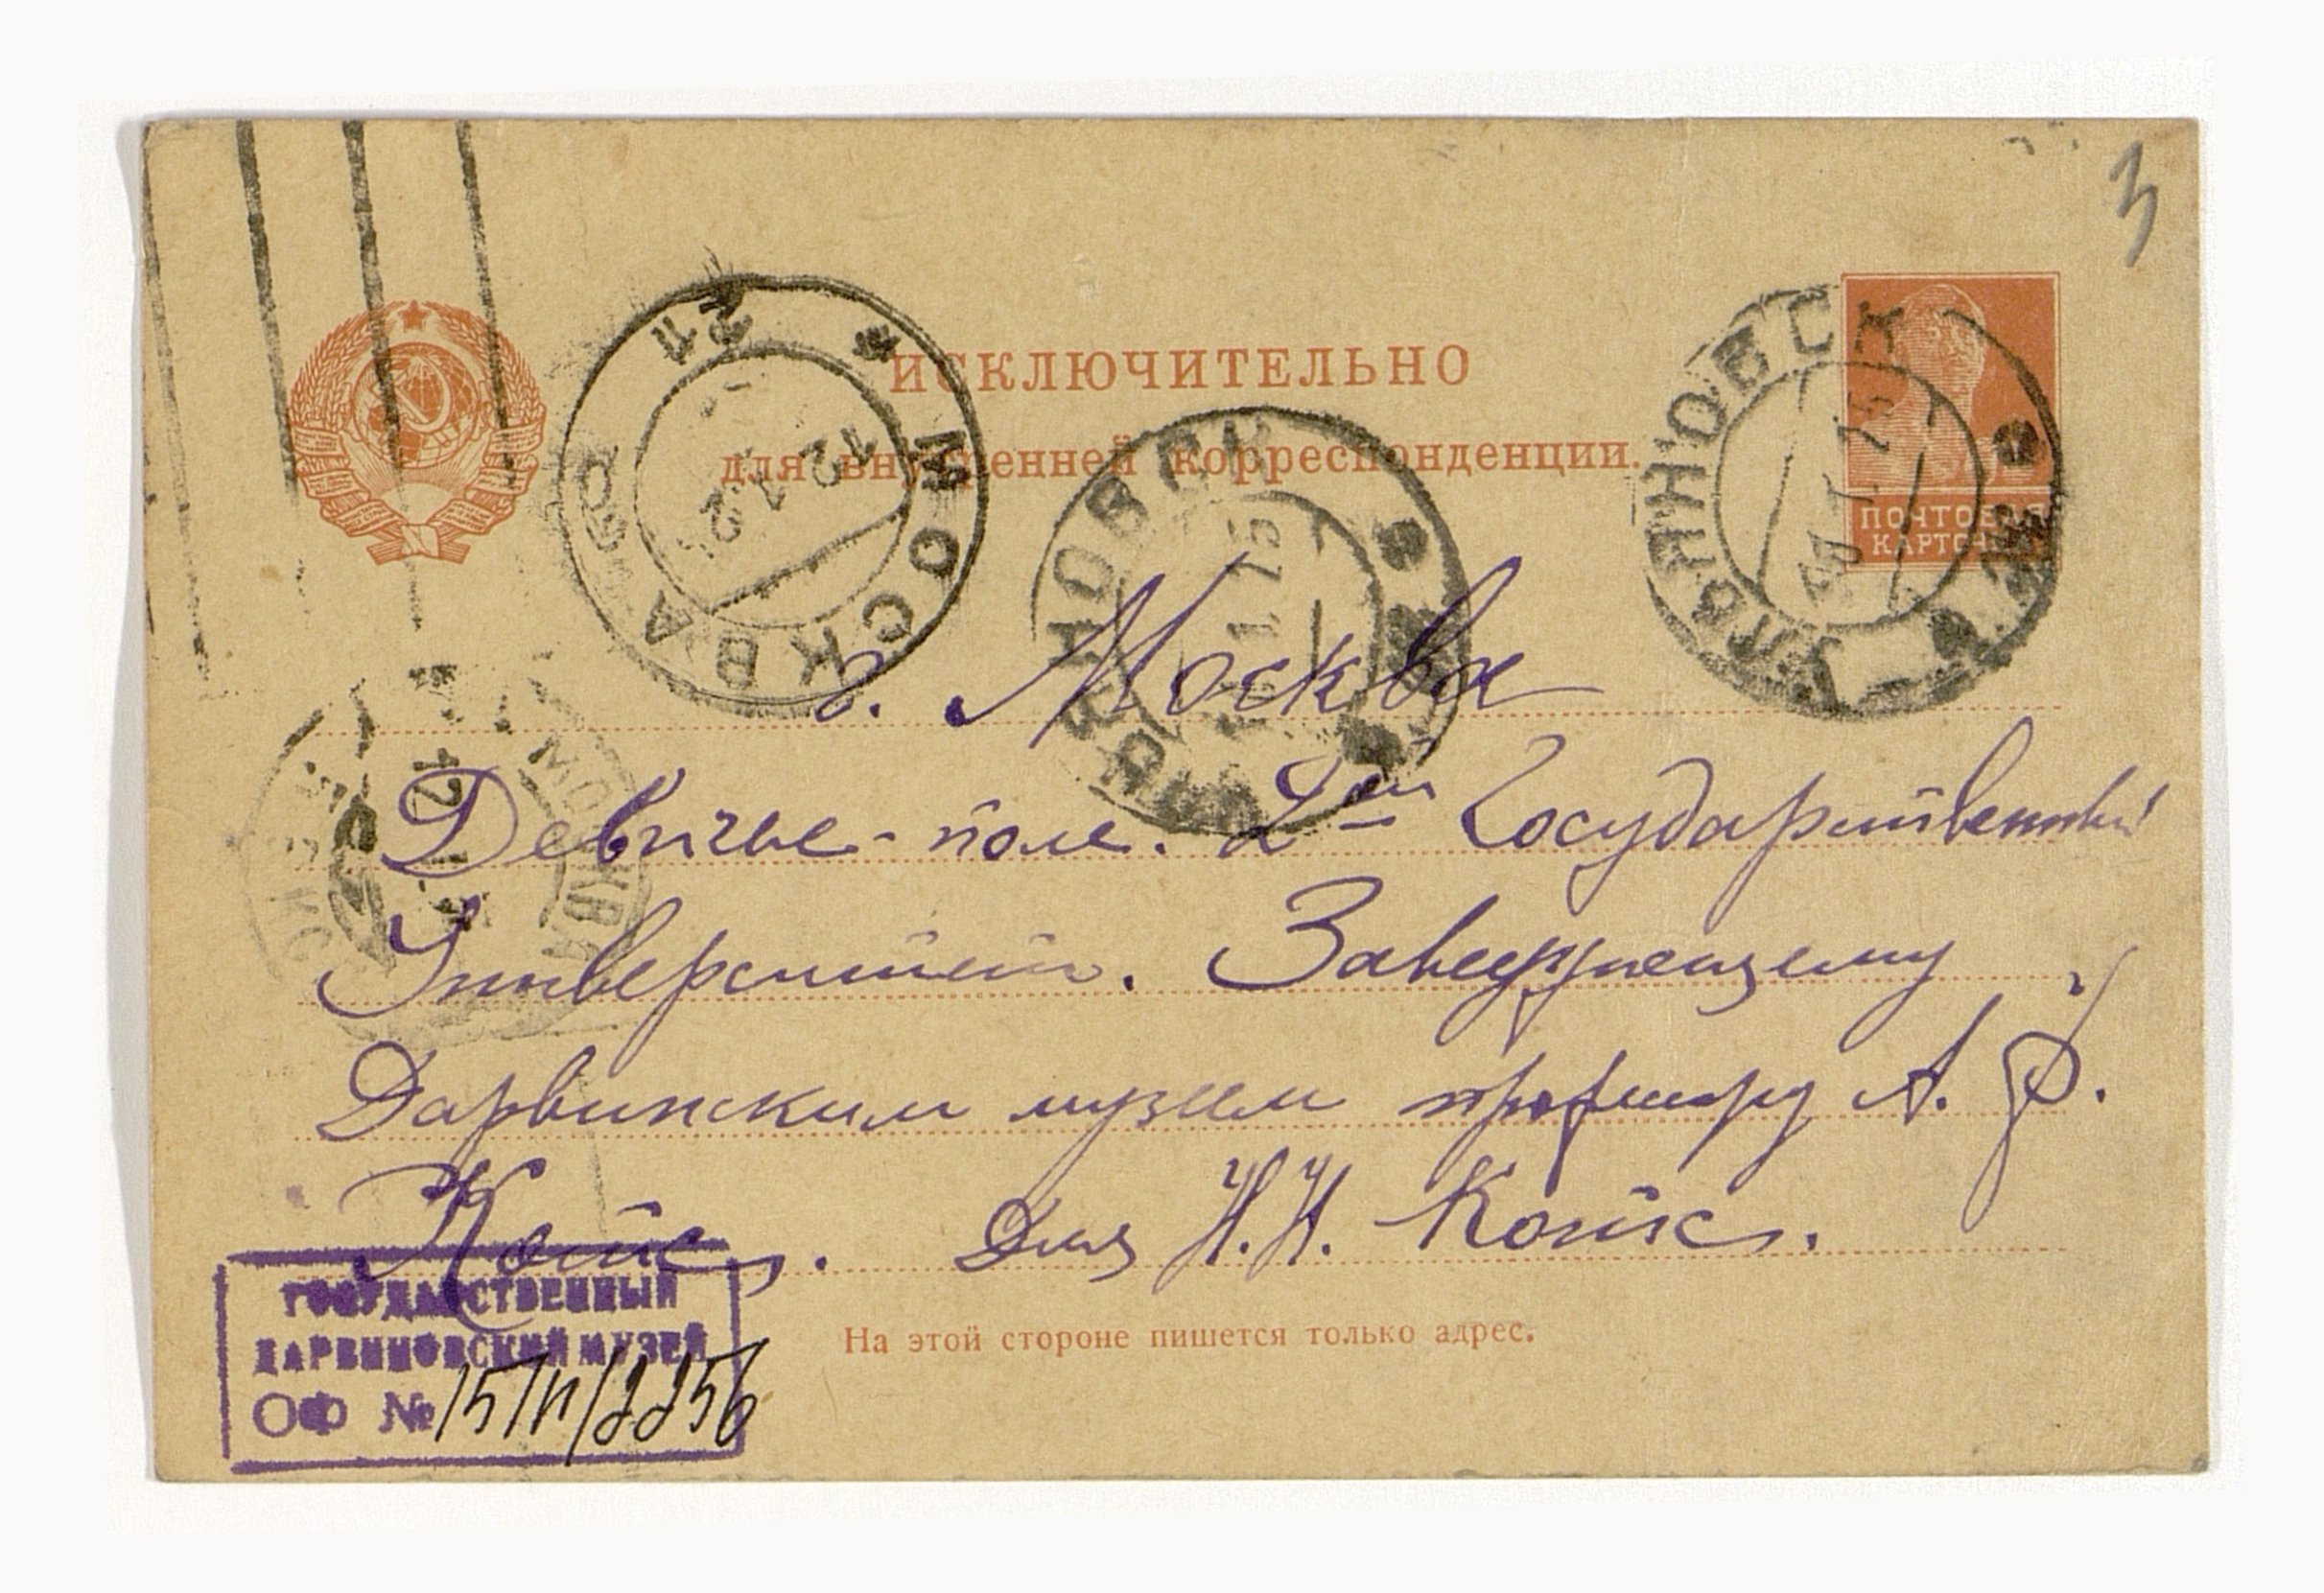 3
ИСКЛЮЧИТЕЛЬНО
для внутренней корреспонденции.
ПОЧТОВАЯ
КАРТОЧКА
УЛЬЯНОВСК
УЛЬЯНОВСК
МОСКВА
12.1.25
МОСКВА
12
г. Москва
Девичье-поле. 2ой Государственный
Университет. Заведующему
Дарвинским музеем профессору А. Ф.
Котс. Для Н. Н. Котс.
На этой стороне пишется только адрес.
ГОСУДАРСТВЕННЫЙ
ДАРВИНОВСКИЙ МУЗЕЙ
ОФ №